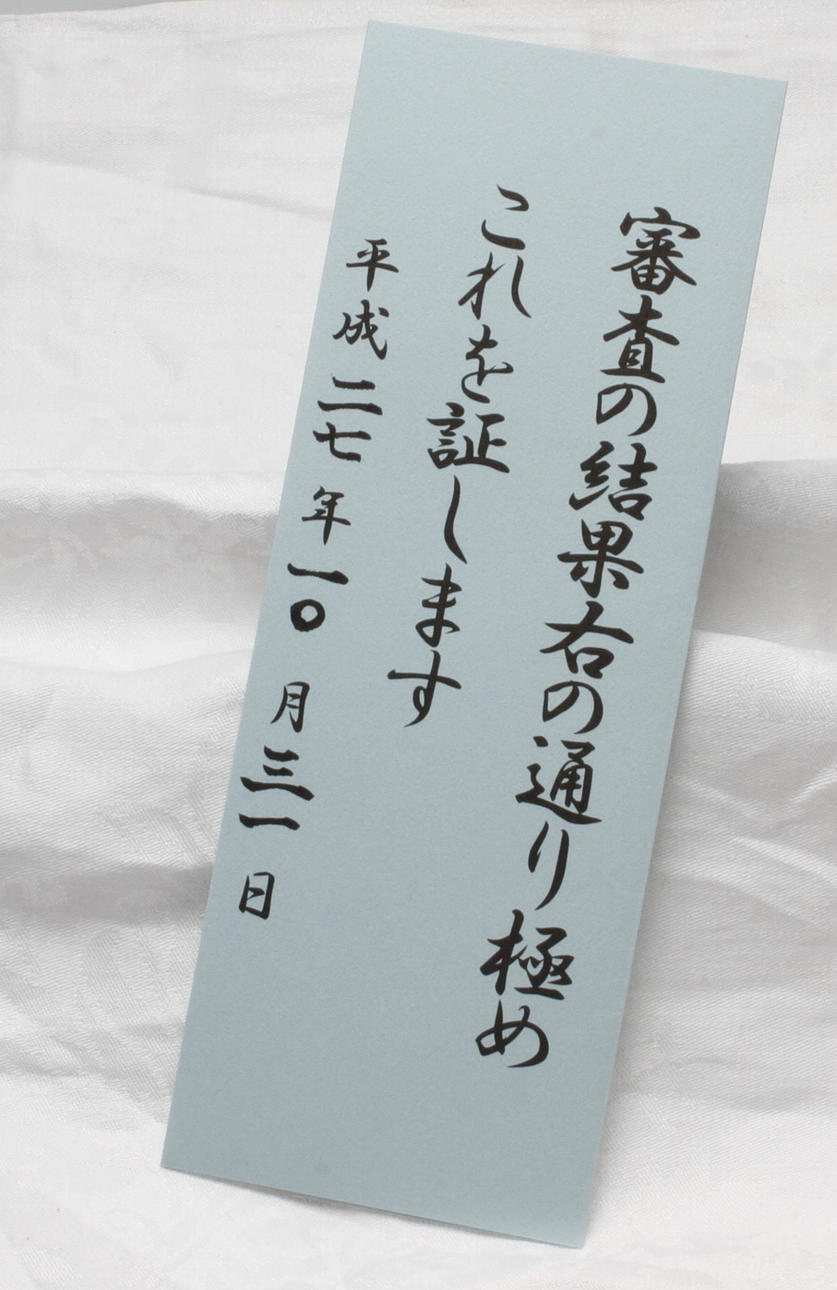 審査の結果右の通り極め
これを証します
平成二七年一〇月三一日